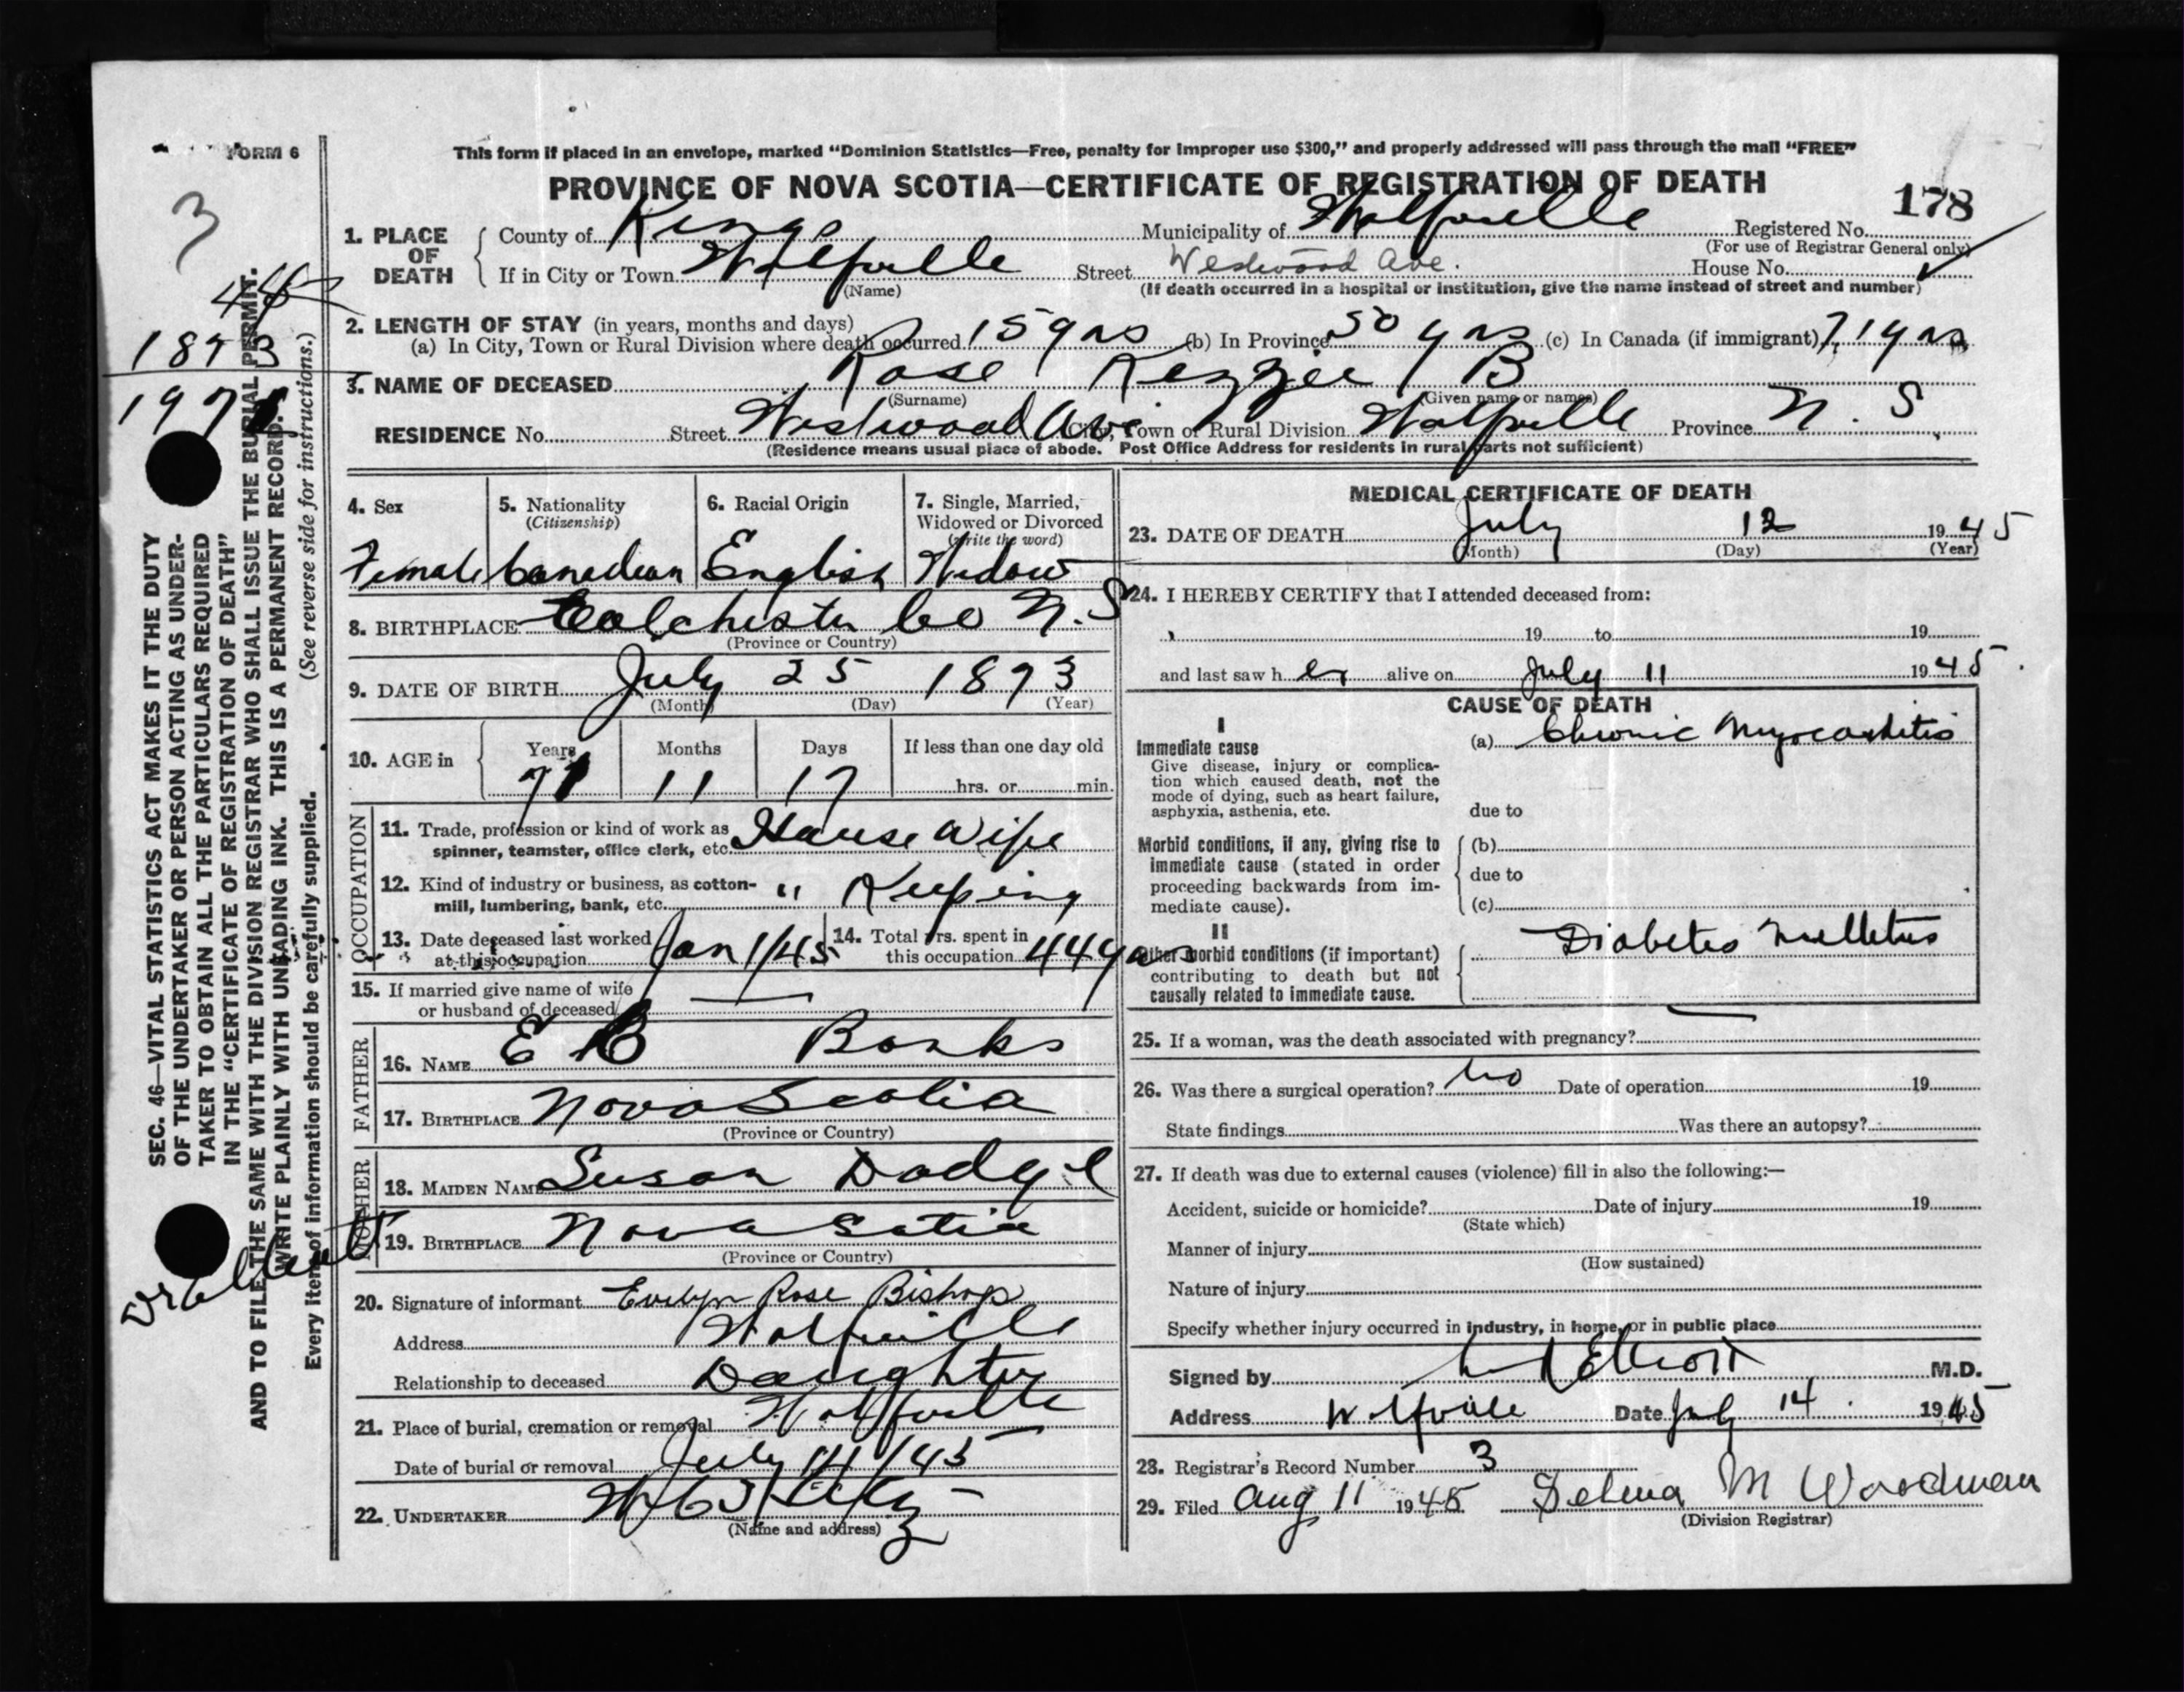 FORM 6
This form if placed in an envelope, marked "Dominion Statistics—Free, penalty for improper use $300," and properly addressed will pass through the mail "FREE"
PROVINCE OF NOVA SCOTIA—CERTIFICATE OF REGISTRATION OF DEATH
178
3
1. PLACE OF DEATH
County of Kings Municipality of Wolfville Registered No.
(For use of Registrar General only)
If in City or Town Wolfville Street Westwood Ave. House No.
(Name) (If death occurred in a hospital or institution, give the name instead of street and number)
2. LENGTH OF STAY (in years, months and days)
(a) In City, Town or Rural Division where death occurred 15 yrs (b) In Province 50 yrs (c) In Canada (if immigrant) 71 yrs
3. NAME OF DECEASED Rose Kezzie B
(Surname) (Given name or names)
RESIDENCE No. Street Westwood Ave City, Town or Rural Division Wolfville Province N. S
(Residence means usual place of abode. Post Office Address for residents in rural parts not sufficient)
4. Sex 5. Nationality 6. Racial Origin 7. Single, Married,
(Citizenship) Widowed or Divorced
(write the word)
Female Canadian English Widow
8. BIRTHPLACE Colchester Co N.S
(Province or Country)
9. DATE OF BIRTH July 25 1873
(Month) (Day) (Year)
10. AGE in Years Months Days If less than one day old
71 11 17 hrs. or min.
OCCUPATION
11. Trade, profession or kind of work as
spinner, teamster, office clerk, etc. House Wife
12. Kind of industry or business, as cotton-
mill, lumbering, bank, etc. " Keeping
13. Date deceased last worked
at this occupation Jan 1/45
14. Total yrs. spent in
this occupation 44 yrs
15. If married give name of wife
or husband of deceased —
FATHER
16. NAME E B Banks
17. BIRTHPLACE Nova Scotia
(Province or Country)
MOTHER
18. MAIDEN NAME Susan Dodge
19. BIRTHPLACE Nova Scotia
(Province or Country)
20. Signature of informant Evelyn Rose Bishop
Address Wolfville
Relationship to deceased Daughter
21. Place of burial, cremation or removal Wolfville
Date of burial or removal July 14/45
22. UNDERTAKER
(Name and address)
MEDICAL CERTIFICATE OF DEATH
23. DATE OF DEATH July 12 1945
(Month) (Day) (Year)
24. I HEREBY CERTIFY that I attended deceased from:
19 to 19
and last saw her alive on July 11 1945
CAUSE OF DEATH
I
Immediate cause
Give disease, injury or complica-
tion which caused death, not the
mode of dying, such as heart failure,
asphyxia, asthenia, etc.
(a) Chronic Myocarditis
due to
Morbid conditions, if any, giving rise to
immediate cause (stated in order
proceeding backwards from im-
mediate cause).
(b)
due to
(c)
II
Other morbid conditions (if important)
contributing to death but not
causally related to immediate cause.
Diabetes Mellitus
25. If a woman, was the death associated with pregnancy? —
26. Was there a surgical operation? No Date of operation 19
State findings Was there an autopsy?
27. If death was due to external causes (violence) fill in also the following:—
Accident, suicide or homicide? Date of injury 19
(State which)
Manner of injury
(How sustained)
Nature of injury
Specify whether injury occurred in industry, in home, or in public place
Signed by Elliott M.D.
Address Wolfville Date July 14 1945
28. Registrar's Record Number 3
29. Filed Aug 11 1945 Delma M Woodman
(Division Registrar)
SEC. 46—VITAL STATISTICS ACT MAKES IT THE DUTY
OF THE UNDERTAKER OR PERSON ACTING AS UNDER-
TAKER TO OBTAIN ALL THE PARTICULARS REQUIRED
IN THE "CERTIFICATE OF REGISTRATION OF DEATH"
AND TO FILE THE SAME WITH THE DIVISION REGISTRAR WHO SHALL ISSUE THE BURIAL PERMIT.
WRITE PLAINLY WITH UNFADING INK. THIS IS A PERMANENT RECORD.
Every item of information should be carefully supplied. (See reverse side for instructions.)
1873